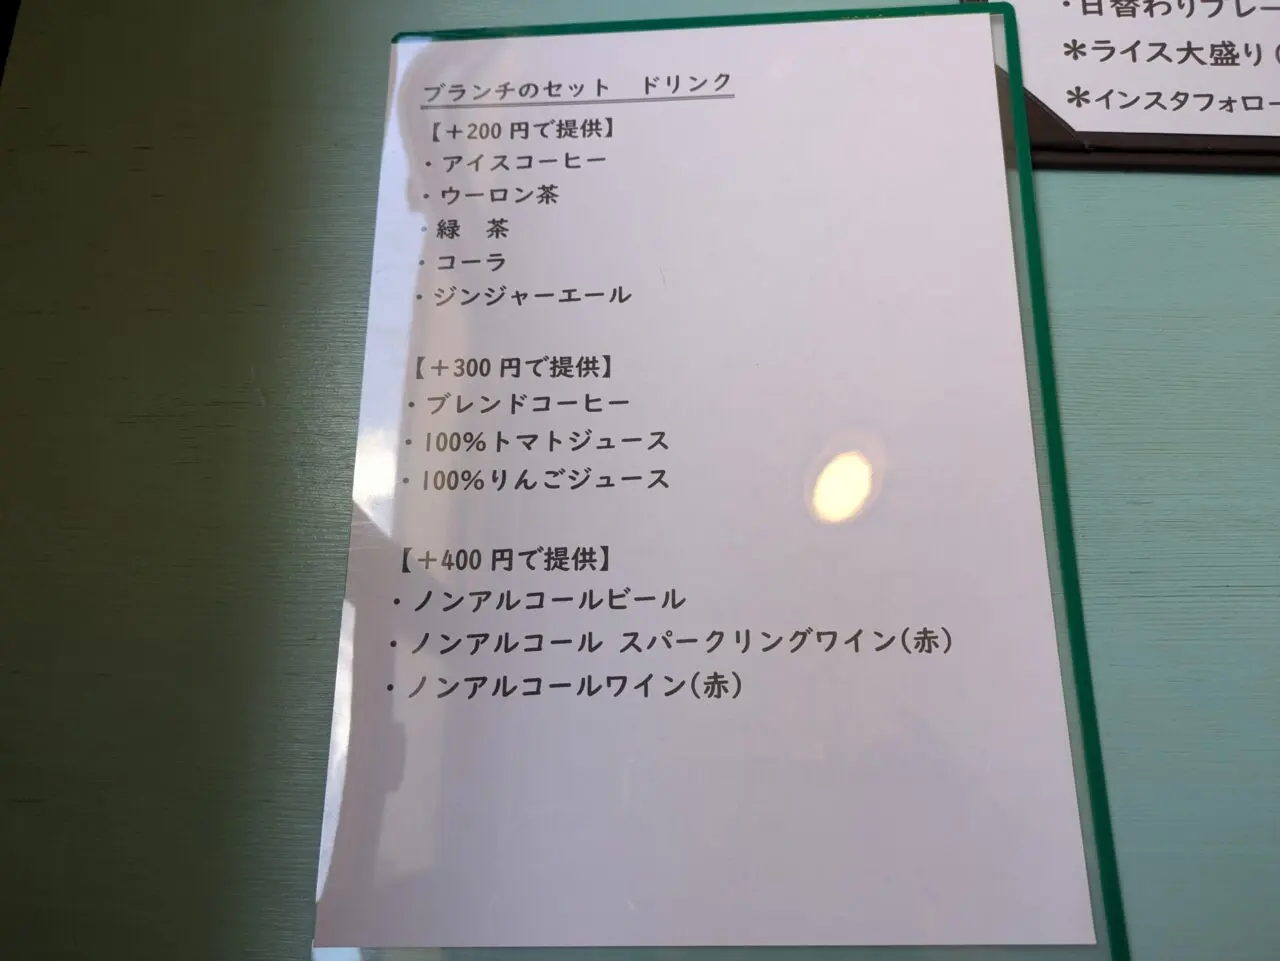 ブランチのセット　ドリンク
【＋200 円で提供】
・アイスコーヒー
・ウーロン茶
・緑　茶
・コーラ
・ジンジャーエール
【＋300 円で提供】
・ブレンドコーヒー
・100%トマトジュース
・100%りんごジュース
【＋400 円で提供】
・ノンアルコールビール
・ノンアルコール スパークリングワイン(赤)
・ノンアルコールワイン(赤)
・日替わりプレー
＊ライス大盛り(
＊インスタフォロー